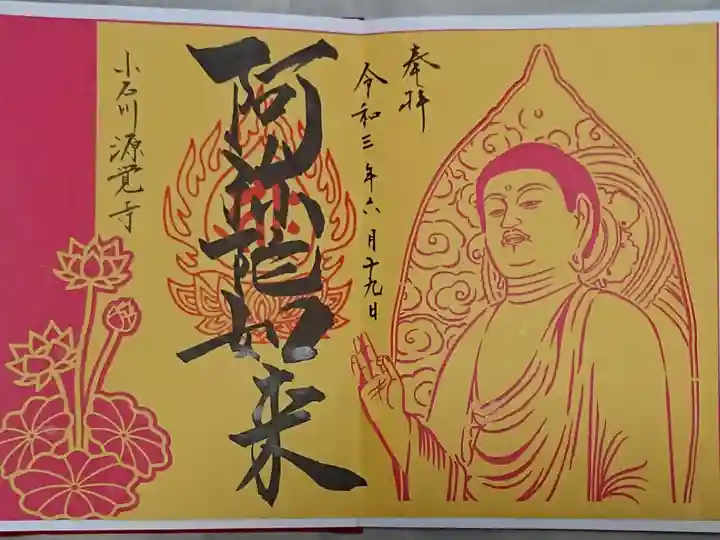 奉拝
令和三年六月十九日
阿弥陀如来
小石川源覚寺